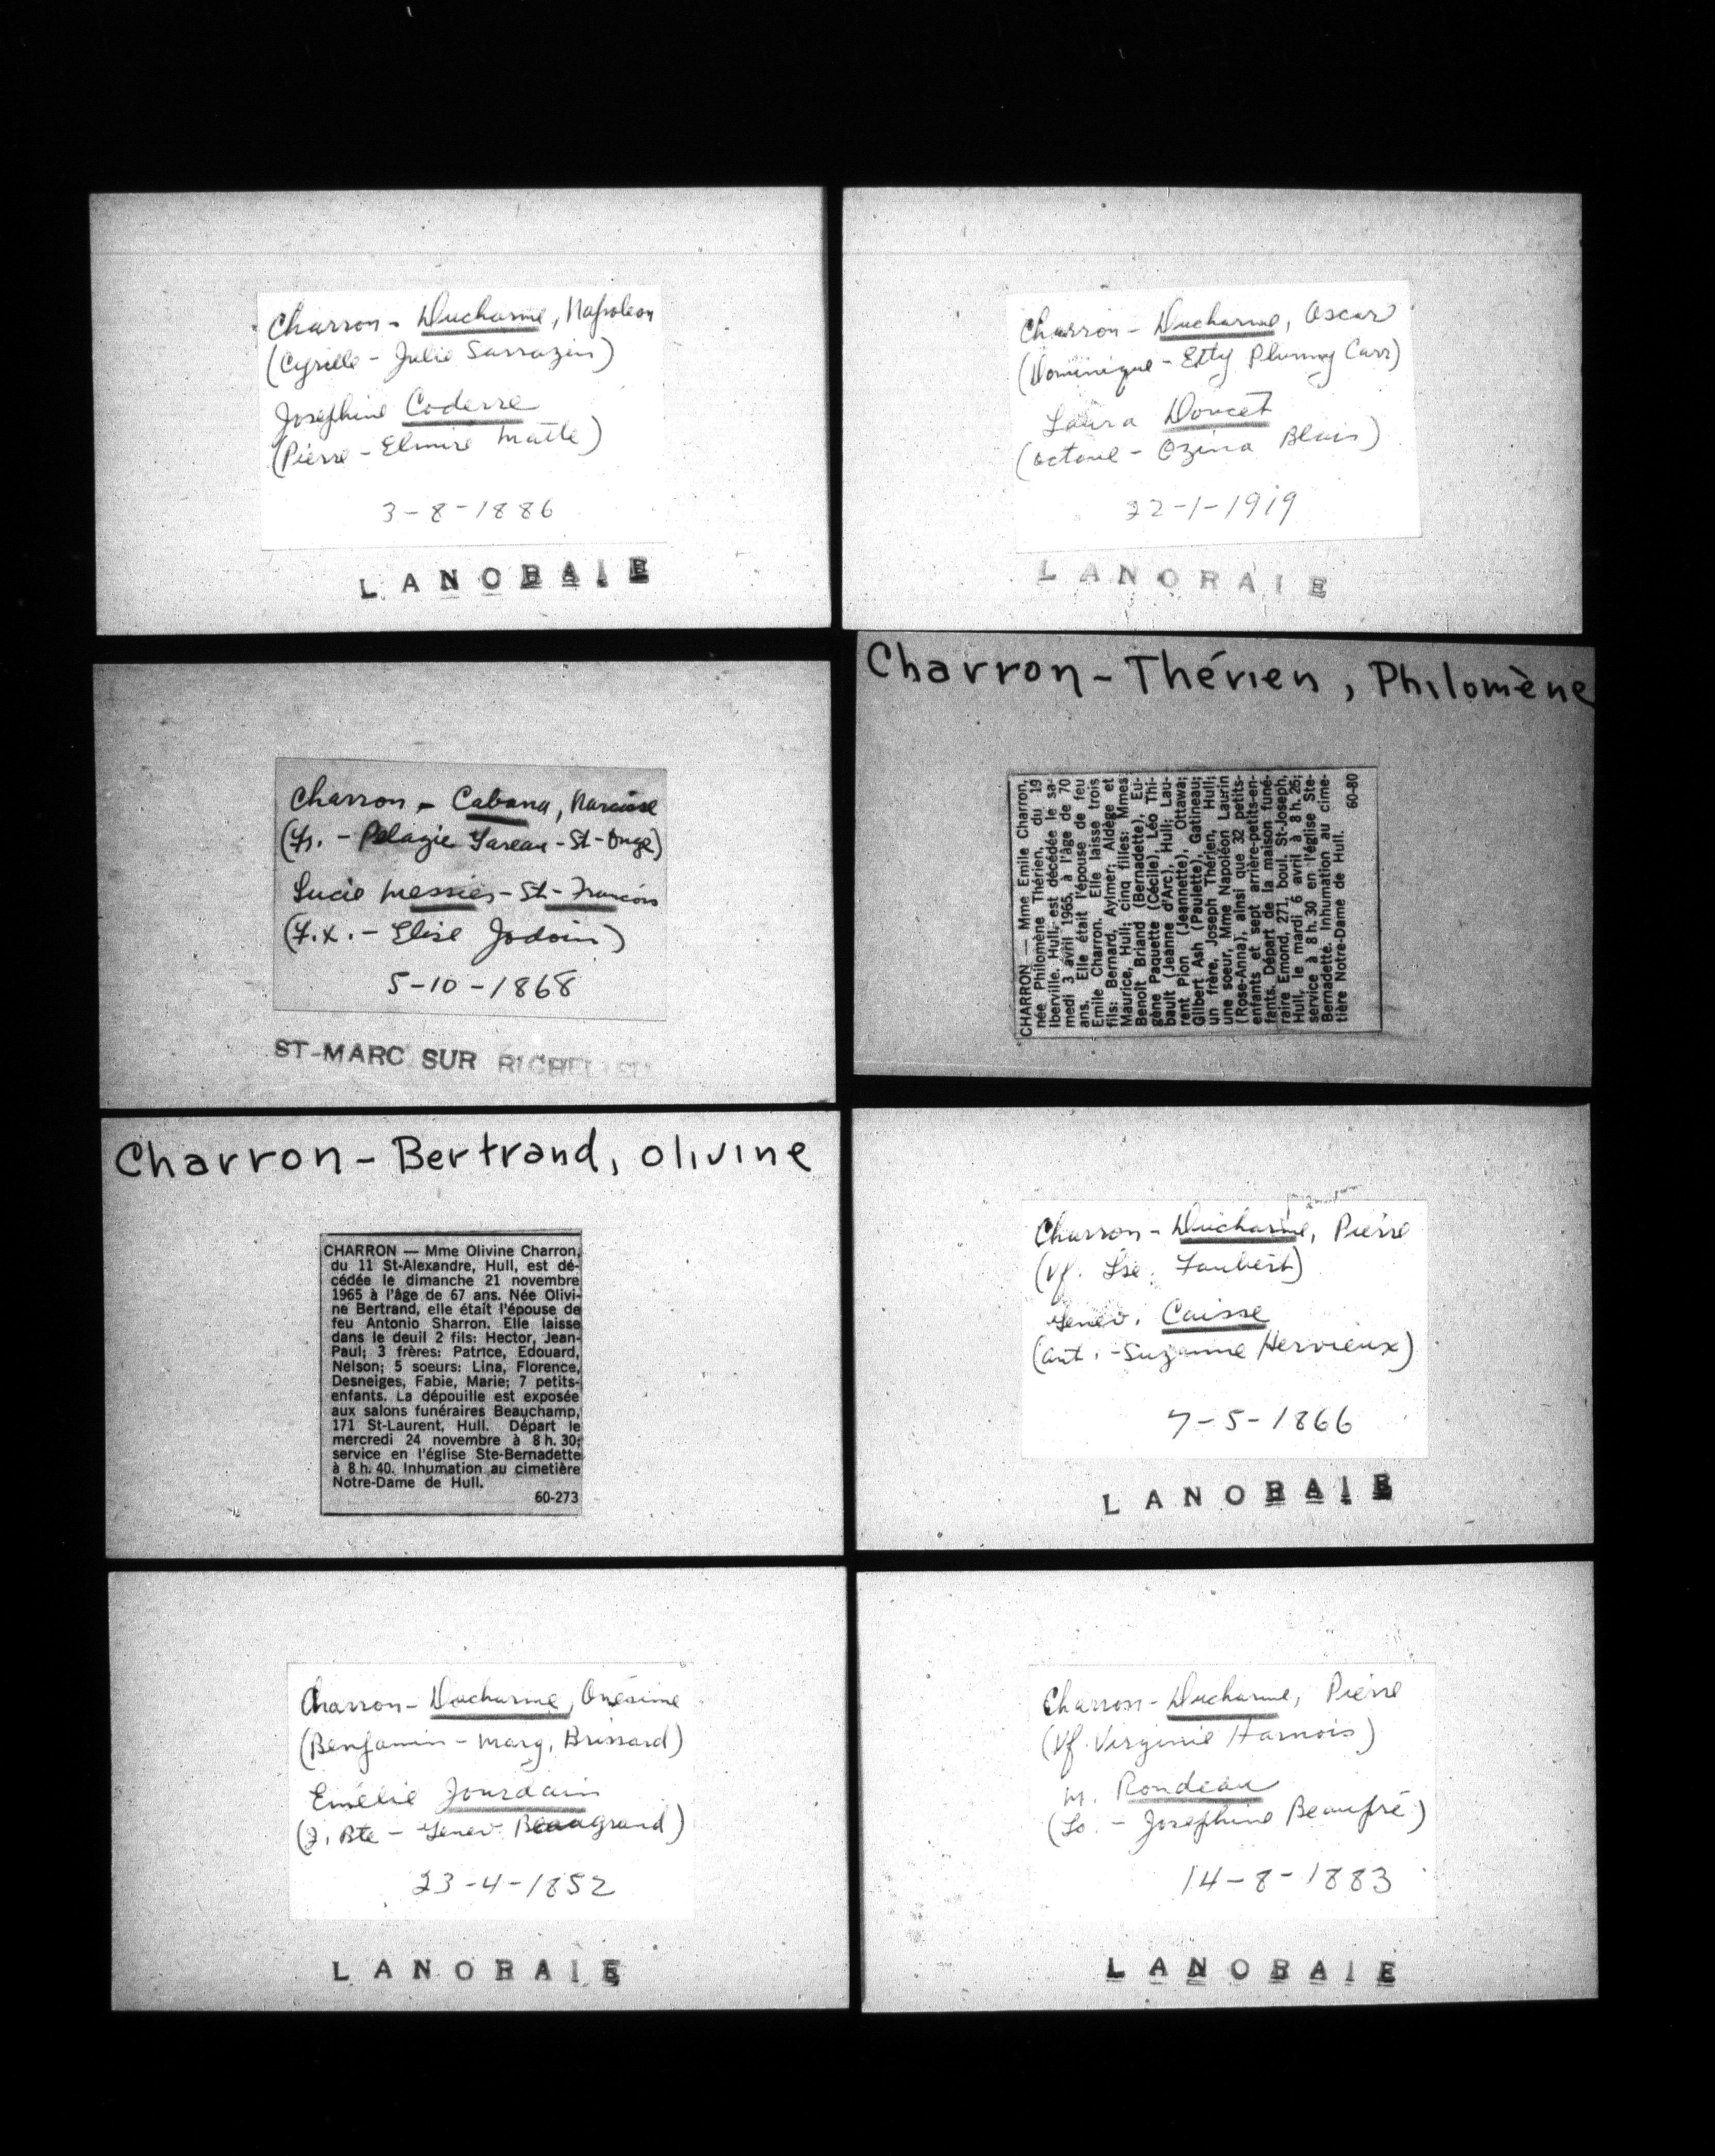 Charron - Ducharme, Napoleon
(Cyrille - Julie Sarrazin)
Josephine Coderre
(Pierre - Elmire Matte)
3-8-1886
LANORAIE
Charron - Ducharme, Oscar
(Dominique - Etty Carr)
Laura Doucet
(Octave - Ozina Blais)
22-1-1919
LANORAIE
Charron - Cabana, Narcisse
(Fr. - Pelagie Sareau - St-Onge)
Lucie Messier - St-Francois
(F.X. - Elise Jodoin)
5-10-1868
ST-MARC SUR RICHELIEU
Charron - Thérien, Philomène
CHARRON — Mme Emile Charron,
née Philomène Thérien, du 19
Iberville, Hull, est décédée le sa-
medi 3 avril 1965, à l'âge de 70
ans. Elle était l'épouse de feu
Emile Charron. Elle laisse trois
fils: Bernard, Aylmer; Aldège et
Maurice, Hull; cinq filles: Mmes
Benoît Briand (Bernadette), Eu-
gène Paquette (Cécile), Léo Thi-
bault (Jeanne d'Arc), Hull; Lau-
rent Pion (Jeannette), Ottawa;
Gilbert Ash (Paulette), Gatineau;
un frère, Joseph Thérien, Hull;
une soeur, Mme Napoléon Laurin
(Rose-Anna), ainsi que 32 petits-
enfants et sept arrière-petits-en-
fants. Départ de la maison funé-
raire Emond, 271, boul. St-Joseph,
Hull, le mardi 6 avril à 8 h. 25;
service à 8 h. 30 en l'église Ste-
Bernadette. Inhumation au cime-
tière Notre-Dame de Hull.
60-80
Charron - Bertrand, olivine
CHARRON — Mme Olivine Charron,
du 11 St-Alexandre, Hull, est dé-
cédée le dimanche 21 novembre
1965 à l'âge de 67 ans. Née Olivi-
ne Bertrand, elle était l'épouse de
feu Antonio Sharron. Elle laisse
dans le deuil 2 fils: Hector, Jean-
Paul; 3 frères: Patrice, Edouard,
Nelson; 5 soeurs: Lina, Florence,
Desneiges, Fabie, Marie; 7 petits-
enfants. La dépouille est exposée
aux salons funéraires Beauchamp,
171 St-Laurent, Hull. Départ le
mercredi 24 novembre à 8 h. 30;
service en l'église Ste-Bernadette
à 8 h. 40. Inhumation au cimetière
Notre-Dame de Hull.
60-273
Charron - Ducharme, Pierre
(Vf. Lse. Faubert)
Genev. Caisse
(Ant. - Suzanne Hervieux)
7-5-1866
LANORAIE
Charron - Ducharme, Onésime
(Benjamin - Marg. Brissard)
Emélie Jourdain
(J. Bte - Genev. Beaugrand)
23-4-1852
LANORAIE
Charron - Ducharme, Pierre
(Vf. Virginie Harnois)
M. Rondeau
(Lo. - Josephine Beaupré)
14-8-1883
LANORAIE